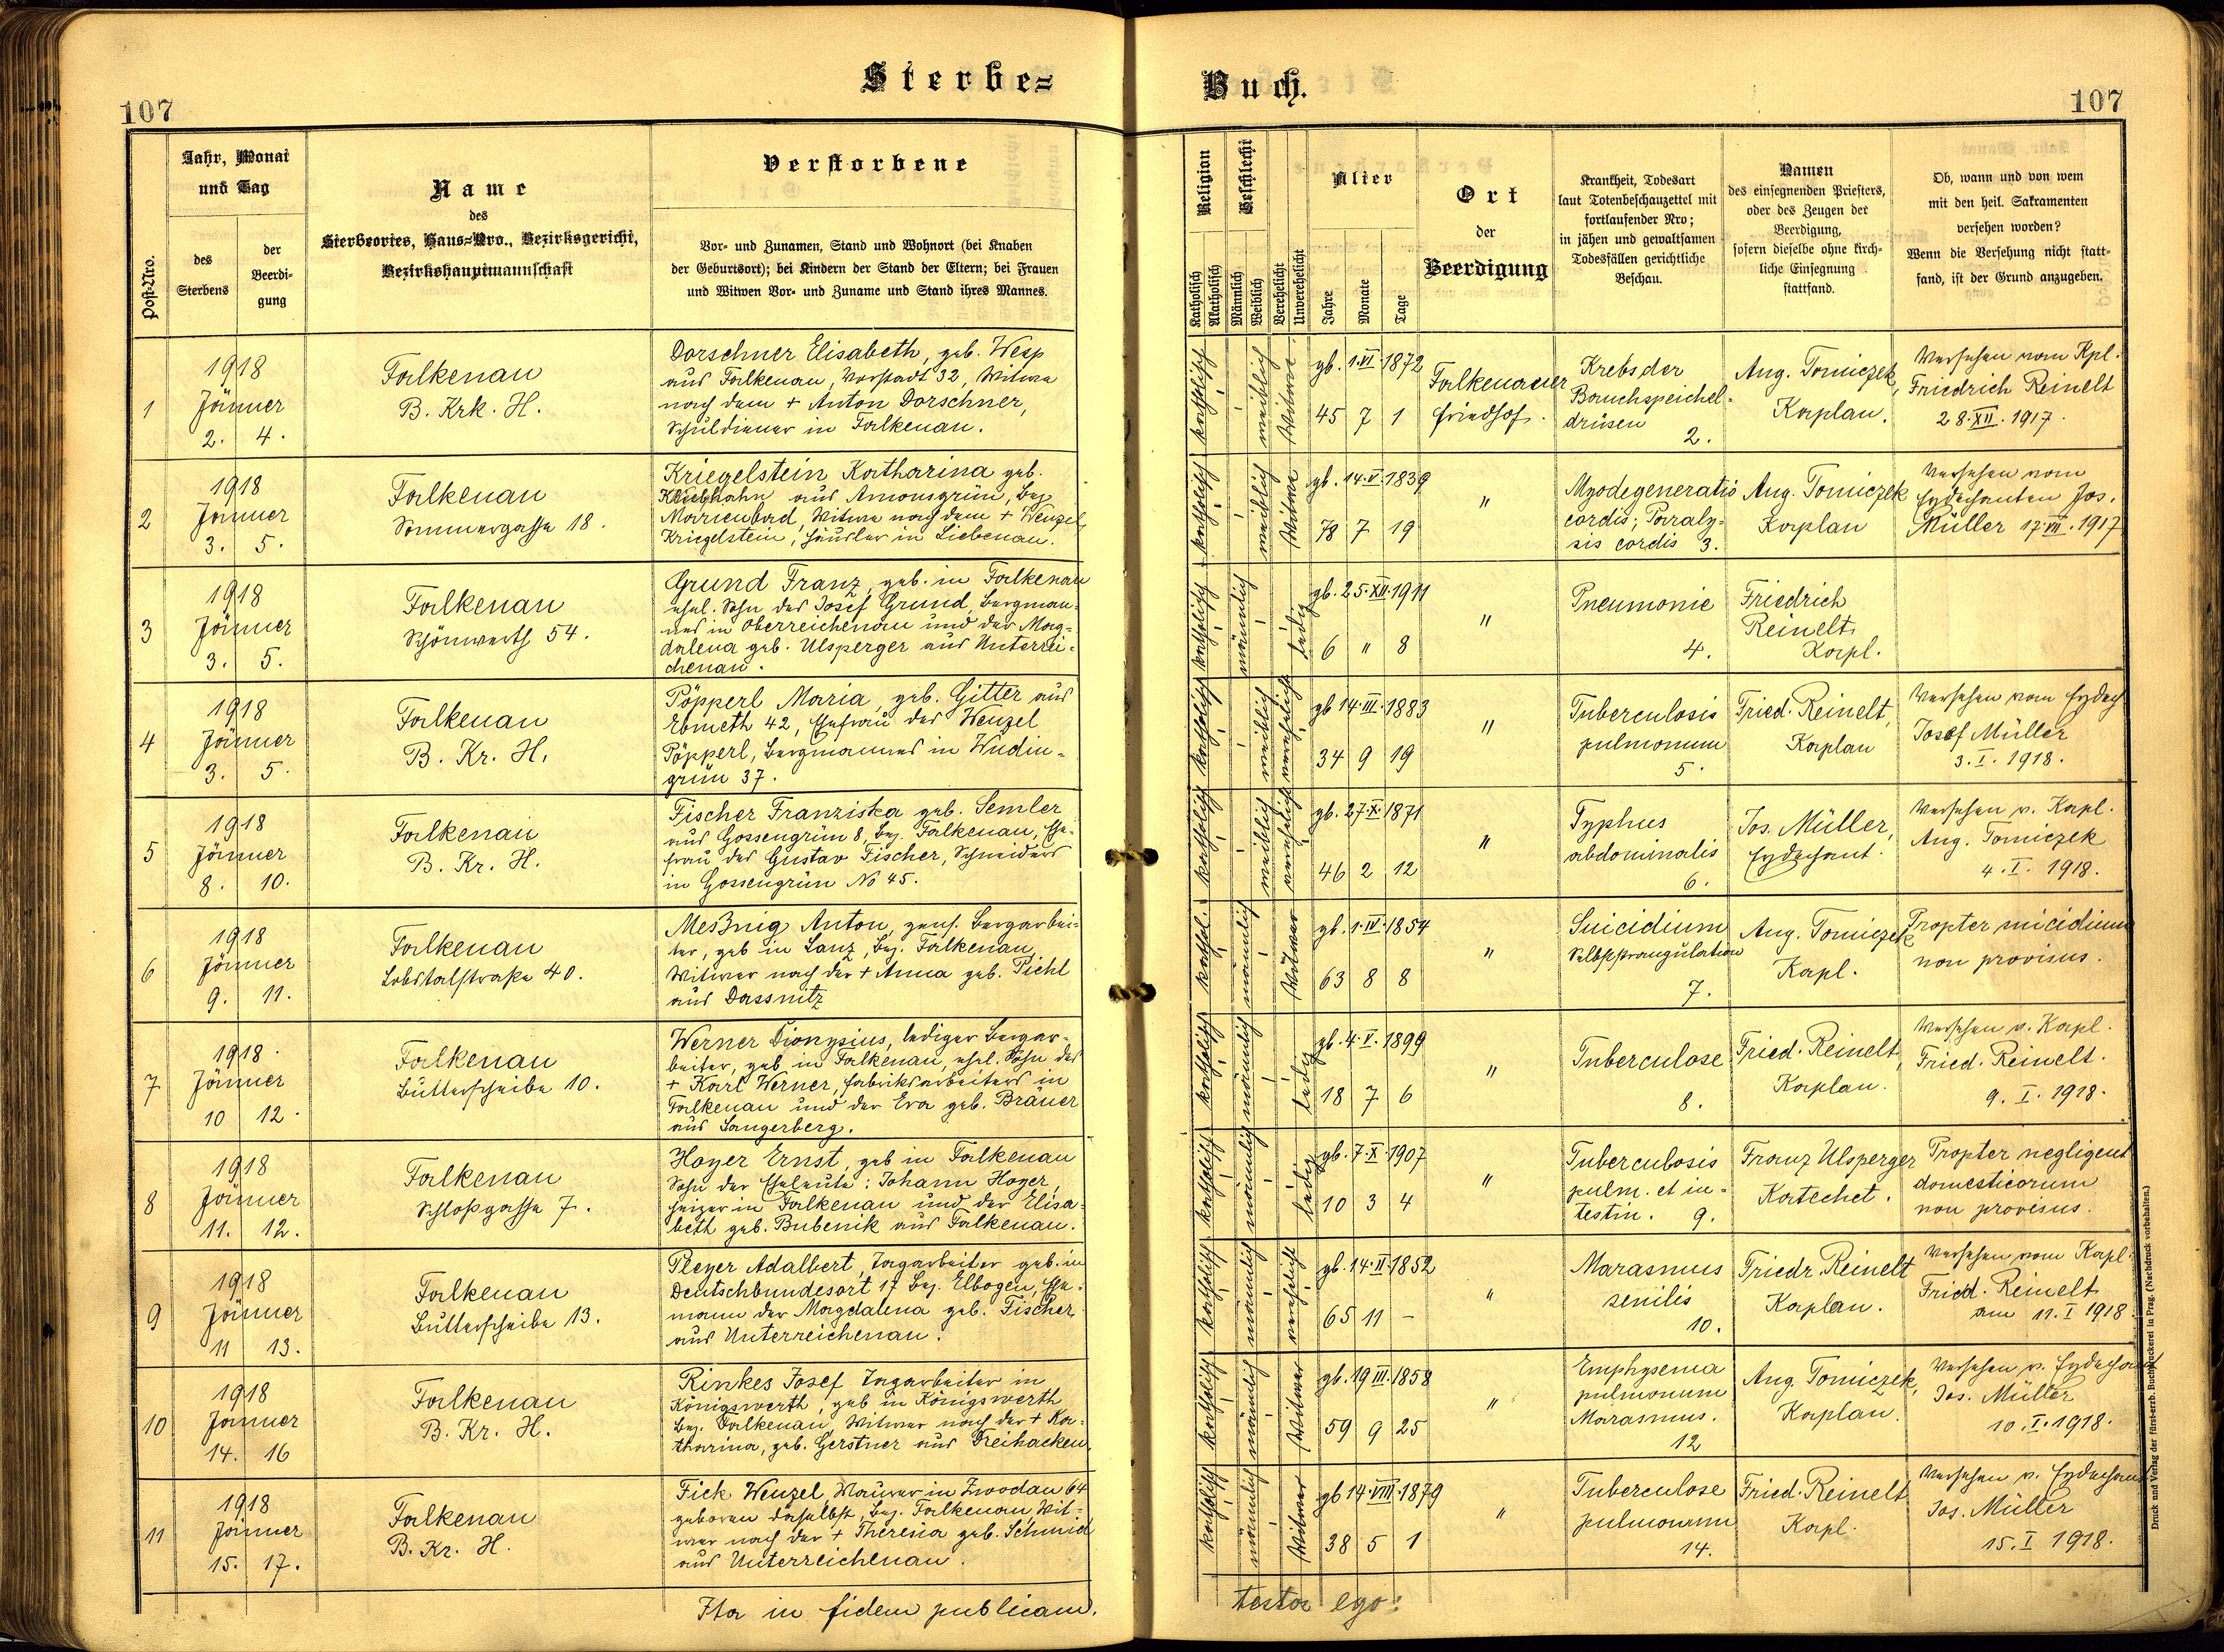 Sterbe=
Buch.
107
107
Post-Nro.
Jahr, Monat
und Tag
des
Sterbens
der
Beerdi-
gung
Name
des
Sterbeortes, Haus=Nro., Bezirksgericht,
Bezirkshauptmannschaft
Verstorbene
Vor- und Zunamen, Stand und Wohnort (bei Knaben
der Geburtsort); bei Kindern der Stand der Eltern; bei Frauen
und Witwen Vor- und Zuname und Stand ihres Mannes.
Religion
Katholisch
Akatholisch
Geschlecht
Männlich
Weiblich
Verehelicht
Unverehelicht
Alter
Jahre
Monate
Tage
Ort
der
Beerdigung
Krankheit, Todesart
laut Totenbeschauzettel mit
fortlaufender Nro;
in jähen und gewaltsamen
Todesfällen gerichtliche
Beschau.
Namen
des einsegnenden Priesters,
oder des Zeugen der
Beerdigung,
sofern dieselbe ohne kirch-
liche Einsegnung
stattfand.
Ob, wann und von wem
mit den heil. Sakramenten
versehen worden?
Wenn die Versehung nicht statt-
fand, ist der Grund anzugeben.
1
1918
Jänner
2. 4.
Falkenau
B. Krk. H.
Dorschner Elisabeth, geb. Wesp
aus Falkenau, Vorstadt 32, Witwe
nach dem + Anton Dorschner,
Schuldiener in Falkenau.
katholisch
weiblich
Witwe
gb. 1.VI.1872
45 7 1
Falkenauer
Friedhof.
Krebs der
Bauchspeichel-
drüsen
2.
Ang. Tomiczek,
Kaplan.
Versehen vom Kpl.
Friedrich Reinelt
28.XII.1917.
2
1918
Jänner
3. 5.
Falkenau
Sommergasse 18.
Kriegelstein Katharina geb.
aus Amonsgrün, Bez.
Marienbad, Witwe nach dem + Wenzel
Kriegelstein, Häusler in Liebenau.
katholisch
weiblich
Witwe
gb. 14.V.1839
78 7 19
"
Myodegeneratio
cordis; Paraly-
sis cordis 3.
Ang. Tomiczek
Kaplan
Versehen vom
Erzdechanten Jos.
Müller 17.VII.1917
3
1918
Jänner
3. 5.
Falkenau
Schönwerth 54.
Grund Franz, geb. in Falkenau
ehel. Sohn des Josef Grund, Bergman-
nes in Oberreichenau und der Mag-
dalena geb. Ulsperger aus Unterrei-
chenau.
katholisch
männlich
ledig
gb. 25.XII.1911
6 " 8
"
Pneumonie
4.
Friedrich
Reinelt
Kapl.
4
1918
Jänner
3. 5.
Falkenau
B. Kr. H.
Pöpperl Maria, geb. Gitter aus
Ebmeth 42, Ehefrau des Wenzel
Pöpperl, Bergmannes in Wudin-
grün 37.
katholisch
weiblich
verehelicht
gb 14.III.1883
34 9 19
"
Tuberculosis
pulmonum
5.
Fried. Reinelt,
Kaplan
Versehen vom Erzdech
Josef Müller
3.I.1918.
5
1918
Jänner
8. 10.
Falkenau
B. Kr. H.
Fischer Franziska geb. Semler
aus Gossengrün 8, Bez. Falkenau, Ehe-
frau des Gustav Fischer, Schneiders
in Gossengrün No 45.
katholisch
weiblich
verehelicht
gb. 27.X.1871
46 2 12
"
Typhus
abdominalis
6.
Jos. Müller,
Erzdechant.
Versehen v. Kapl.
Aug. Tomiczek
4.I.1918.
6
1918
Jänner
9. 11.
Falkenau
Lobstalstraße 40.
Meßnig Anton, pens. Bergarbei-
ter, geb in Lanz, Bez. Falkenau,
Witwer nach der + Anna geb. Pichl
aus Dassnitz
kathol.
männlich
Witwer
gb. 1.IV.1854
63 8 8
"
Suicidium
Selbststrangulation
7.
Ang. Tomiczek
Kapl.
Propter suicidium
non provisus.
7
1918
Jänner
10 12.
Falkenau
Butterscheibe 10.
Werner Dionysius, lediger Bergar-
beiter, geb. in Falkenau, ehel. Sohn des
+ Karl Werner, Fabriksarbeiters in
Falkenau und der Eva geb. Bräuer
aus Sangerberg.
katholisch
männlich
ledig
gb. 4.V.1899
18 7 6
"
Tuberculose
8.
Fried. Reinelt
Kaplan.
Versehen v. Kapl.
Fried. Reinelt.
9.I.1918.
8
1918
Jänner
11. 12.
Falkenau
Schloßgasse 7.
Hoyer Ernst, geb in Falkenau
Sohn der Eheleute: Johann Hoyer,
Heizer in Falkenau und der Elisa-
beth geb. Bubenik aus Falkenau.
katholisch
männlich
ledig
gb. 7.X.1907
10 3 4
"
Tuberculosis
pulm. et in-
testin. 9.
Franz Ulsperger
Katechet.
Propter negligent
domesticorum
non provisus.
9
1918
Jänner
11 13.
Falkenau
Butterscheibe 13.
Pleyer Adalbert, Tagarbeiter geb. in
Deutschbundesort 17 Bez. Elbogen, Ehe-
mann der Magdalena geb. Fischer
aus Unterreichenau.
katholisch
männlich
verehelicht
gb. 14.II.1852
65 11 -
"
Marasmus
senilis
10.
Friedr. Reinelt
Kaplan.
Versehen vom Kapl.
Fried. Reinelt
am 11.I 1918.
10
1918
Jänner
14. 16
Falkenau
B. Kr. H.
Rinkes Josef Tagarbeiter in
Königswerth, geb in Königswerth
Bez. Falkenau, Witwer nach der + Ka-
tharina, geb. Gerstner aus Dreihacken.
katholisch
männlich
Witwer
gb. 19 III.1858
59 9 25
"
Emphysema
pulmonum
Marasmus.
12
Ang. Tomiczek,
Kaplan.
Versehen v. Erzdechant
Jos. Müller
10.I.1918.
11
1918
Jänner
15. 17.
Falkenau
B. Kr. H.
Fick Wenzel, Maurer in Zwodau 64
geboren daselbst, Bez. Falkenau, Wit-
wer nach der + Theresia geb. Schmid
aus Unterreichenau.
katholisch
männlich
Witwer
gb 14.VIII.1879
38 5 1
"
Tuberculose
pulmonum
14.
Fried. Reinelt
Kapl.
Versehen v. Erzdechant
Jos. Müller
15.I 1918.
Ita in fidem publicam.
testor ego:
Druck und Verlag der fürst-erzb. Buchdruckerei in Prag. (Nachdruck vorbehalten.)